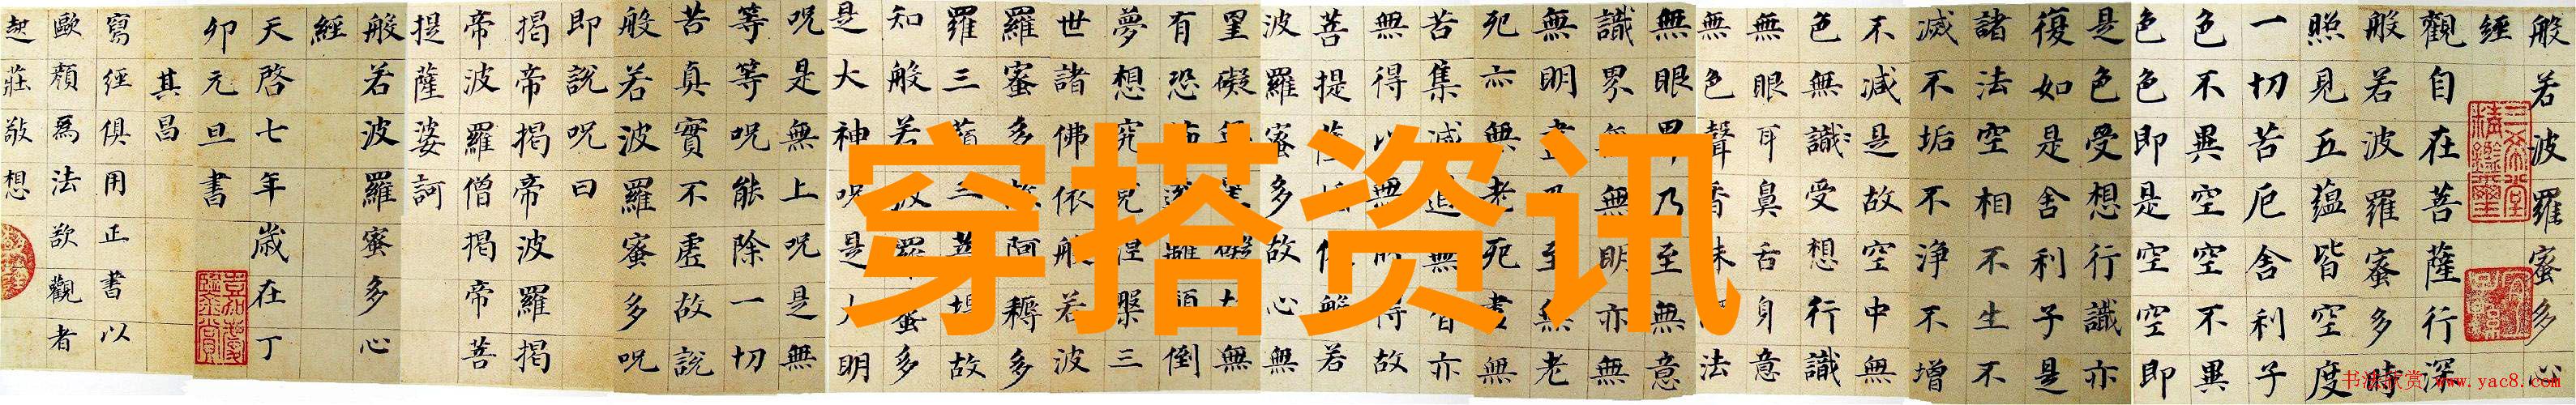 般若波羅蜜多心
經
觀自在菩薩行深
般若波羅蜜多時
照見五蘊皆空度
一切苦厄舍利子
色不異空空不異
色色即是空空即
是色受想行識亦
復如是舍利子是
諸法空相不生不
滅不垢不淨不增
不減是故空中無
色無識受想行識
無眼耳鼻舌身意
無色聲香味法
無眼界乃至無意
識界無無明亦無
無明盡乃至無老
死亦無老死盡無
苦集滅道無智亦
無得以無所得故
菩提薩依般若
波羅蜜多故心無
罣礙無罣礙故無
有恐怖遠離顛倒
夢想究竟涅槃三
世諸佛依般若波
羅蜜多故阿耨多
羅三藐三菩提故
知般若波羅蜜多
是大神咒是大明
咒是無上咒是無
等等咒能除一切
苦真實不虛故說
般若波羅蜜多咒
即說咒曰
揭帝揭帝波羅揭
帝波羅僧揭帝菩
提薩婆訶
般若波羅蜜多心
經
天啓七年歲在丁
卯元旦書
其昌
寫經俱用正書以
歐顏爲法欲觀者
起莊敬想
穿搭资讯
书法欣赏 www.yac8.com